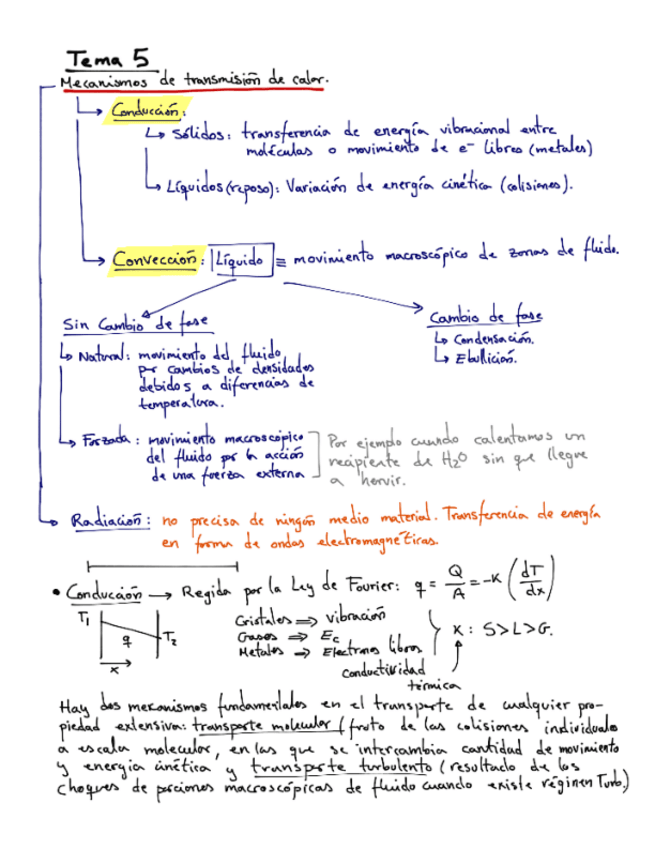 Tema 5
Mecanismos de transmisión de calor.
↳ Conducción:
↳ Sólidos: transferencia de energía vibracional entre
moléculas o movimiento de e⁻ libres (metales)
↳ Líquidos (reposo): Variación de energía cinética (colisiones).
↳ Convección: Líquido ≡ movimiento macroscópico de zonas de fluido.
Sin Cambio de fase
↳ Natural: movimiento del fluido
por cambios de densidades
debidos a diferencias de
temperatura.
↳ Forzada: movimiento macroscópico
del fluido por la acción
de una fuerza externa
Cambio de fase
↳ Condensación.
↳ Ebullición.
Por ejemplo cuando calentamos un
recipiente de H₂O sin que llegue
a hervir.
↳ Radiación: no precisa de ningún medio material. Transferencia de energía
en forma de ondas electromagnéticas.
• Conducción → Regida por la Ley de Fourier: q = Q/A = -K (dT/dx)
T₁ q T₂
x
Cristales ⇒ vibración
Gases ⇒ Ec
Metales → Electrones libres
K: S>L>G.
conductividad
térmica
Hay dos mecanismos fundamentales en el transporte de cualquier pro-
piedad extensiva: transporte molecular (fruto de las colisiones individuales
a escala molecular, en las que se intercambia cantidad de movimiento
y energía cinética y transporte turbulento (resultado de los
choques de porciones macroscópicas de fluido cuando existe régimen Turb.)